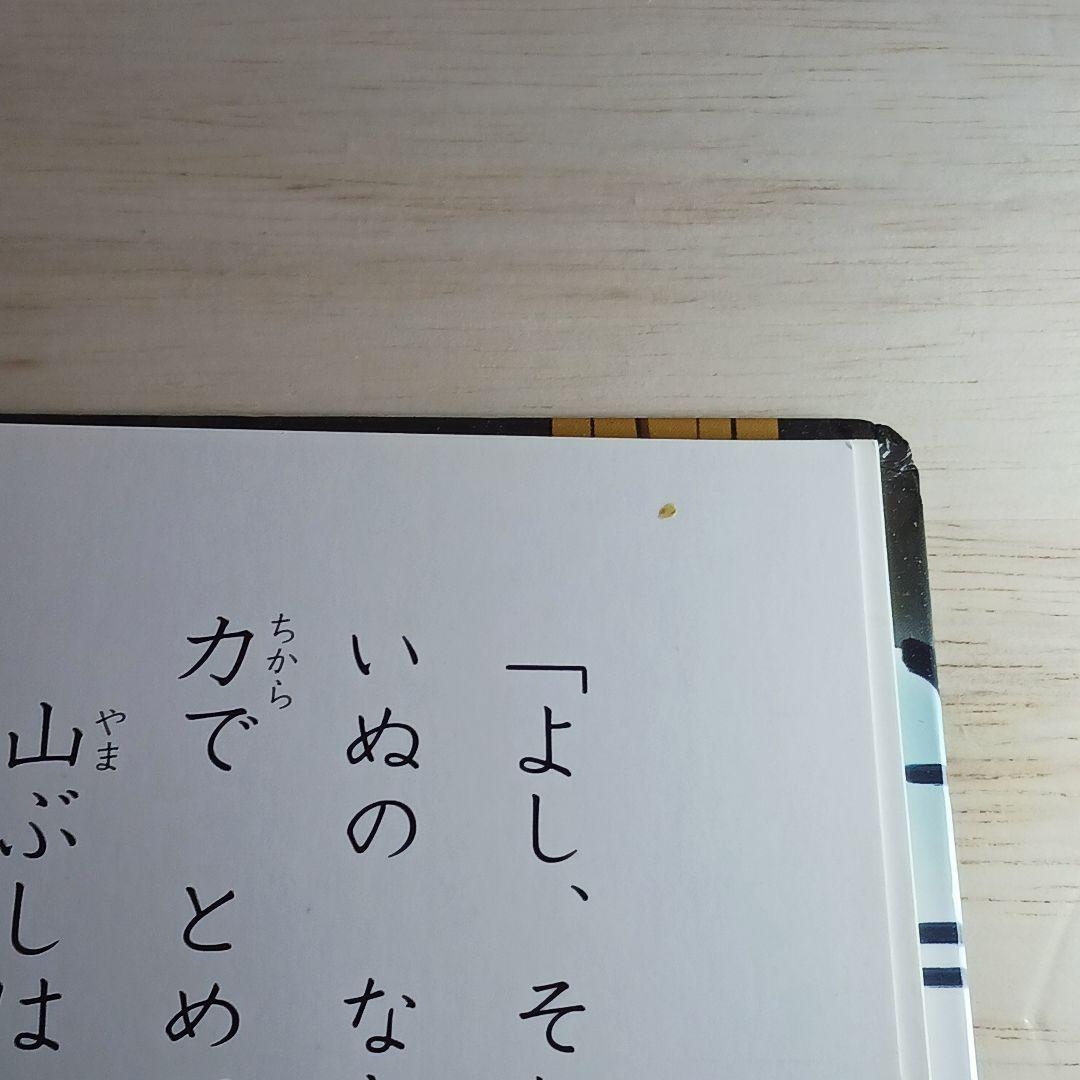 「よし、そ
いぬの な
力で とめ
ちから
山ぶしは
やま